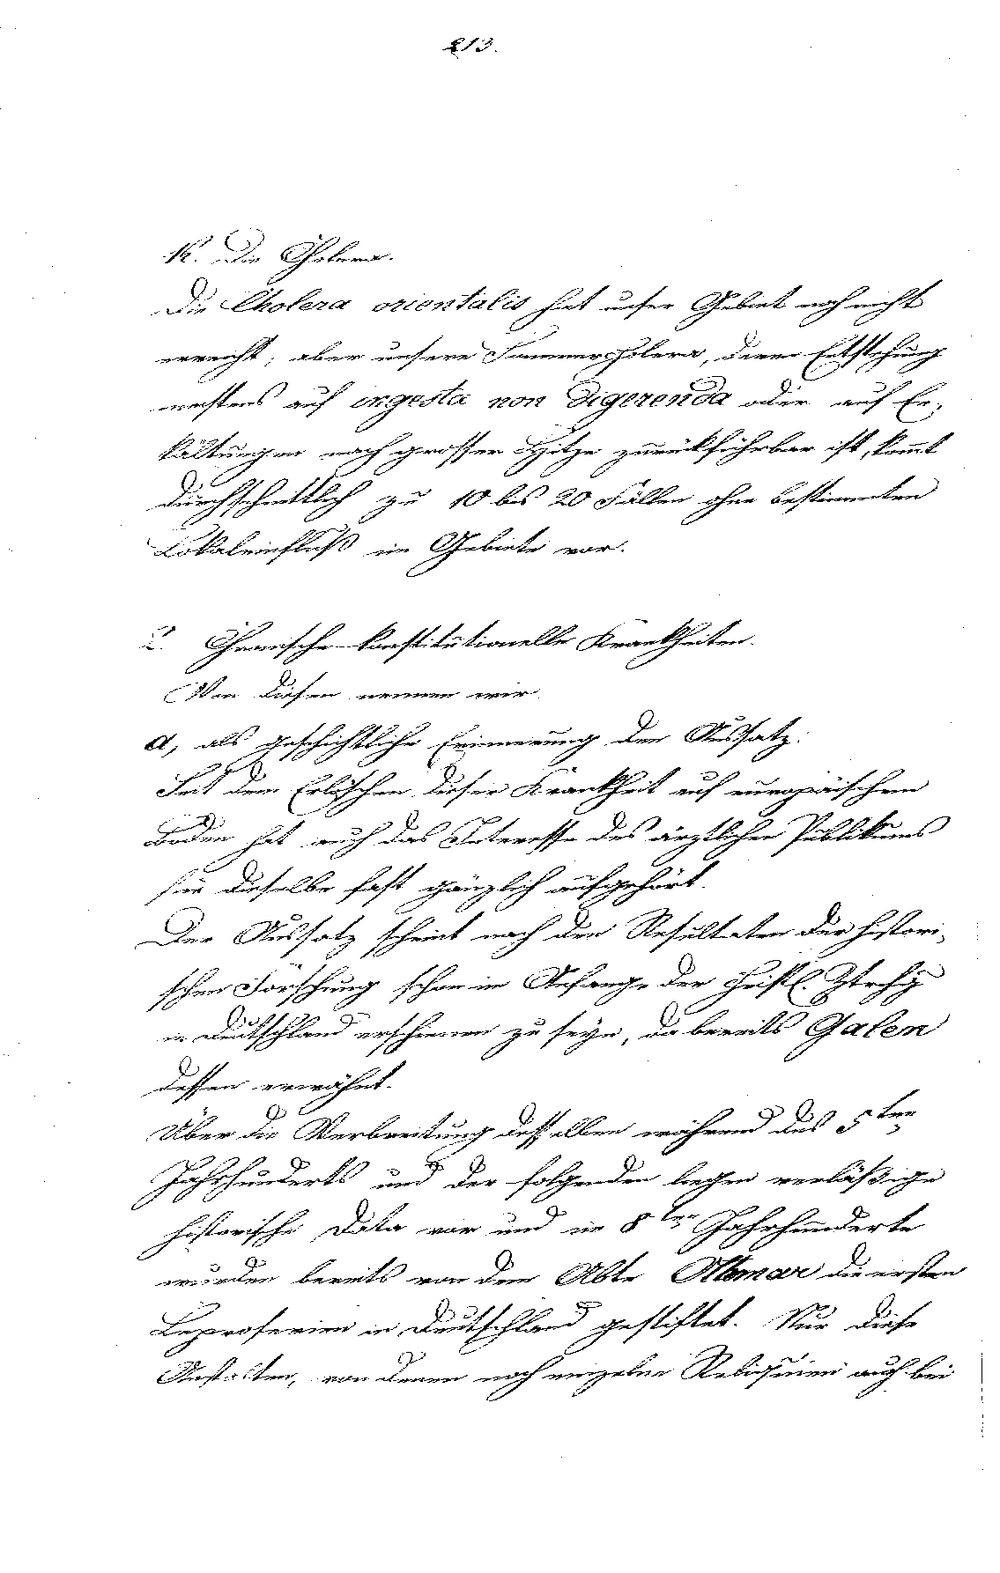 213.
k. Die Cholera.
Die Cholera orientalis hat unser Gebiet noch nicht
erreicht; aber unsere Sommercholera, deren Entstehung
meistens auf ingesta non digerenda oder auf Er-
kältungen nach grosser Hitze zurückführbar ist, kom̅t
durchschnittlich zu 10 bis 20 Fällen ohne bestimmten
Lokaleinfluß im Gebiete vor.
2. Chronische konstitutionelle Krankheiten.
Von diesen nennen wir
a, als geschichtliche Erinnerung den Aussatz:
Seit dem Erlöschen dieser Krankheit auf europäischem
Boden hat auch das Interesse des ärztlichen Publikums
für dieselbe fast gänzlich aufgehört.
Der Aussatz scheint nach den Resultaten der histori-
schen Forschung schon im Anfange der christl. Ztrchg
in Deutschland erschienen zu seyn, da bereits Galen
dessen erwähnt.
Über die Verbreitung desselben während des 5ten
Jahrhunderts und der folgenden liegen verläßige
historische Data vor und im 8ten Jahrhunderte
wurden bereits von dem Abte Othmar die ersten
Leproserien in Deutschland gestiftet. Nur diese
Anstalten, von denen noch einzelne Reliquien auch bei